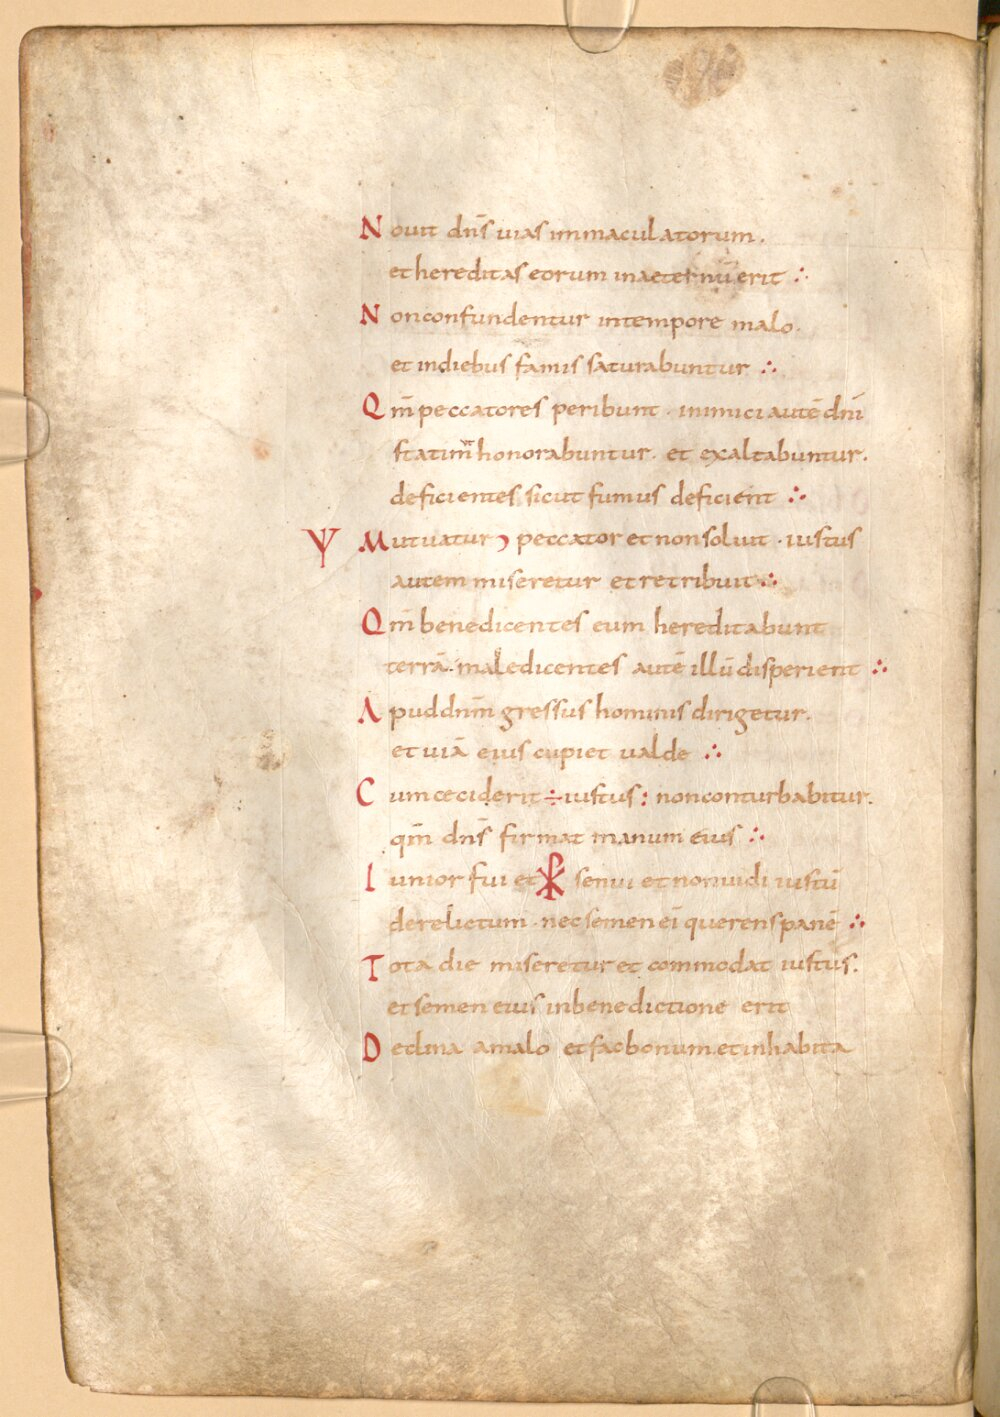 Nouit dn̄s uias immaculatorum.
et hereditas eorum inaeternū erit ჻
Nonconfundentur intempore malo.
et indiebus famis saturabuntur ჻
Qm̄ peccatores peribunt · inimici autē dn̄i
statim honorabuntur. et exaltabuntur.
deficientes sicut fumus deficient ჻
Ψ Mutuatur peccator et non soluit · iustus
autem miseretur et retribuit ჻
Qm̄ benedicentes eum hereditabunt
terrā. maledicentes autē illū disperient ჻
Apud dnm̄ gressus hominis dirigetur.
et uiā eius cupiet ualde ჻
Cum ceciderit ÷ iustus : non conturbabitur.
qm̄ dn̄s firmat manum eius ჻
Iunior fui et ⳩ senui et non uidi iustū
derelictum · nec semen ei querens panē ჻
Tota die miseretur et commodat iustus.
et semen eius inbenedictione erit
Declina amalo et fac bonum. et inhabita